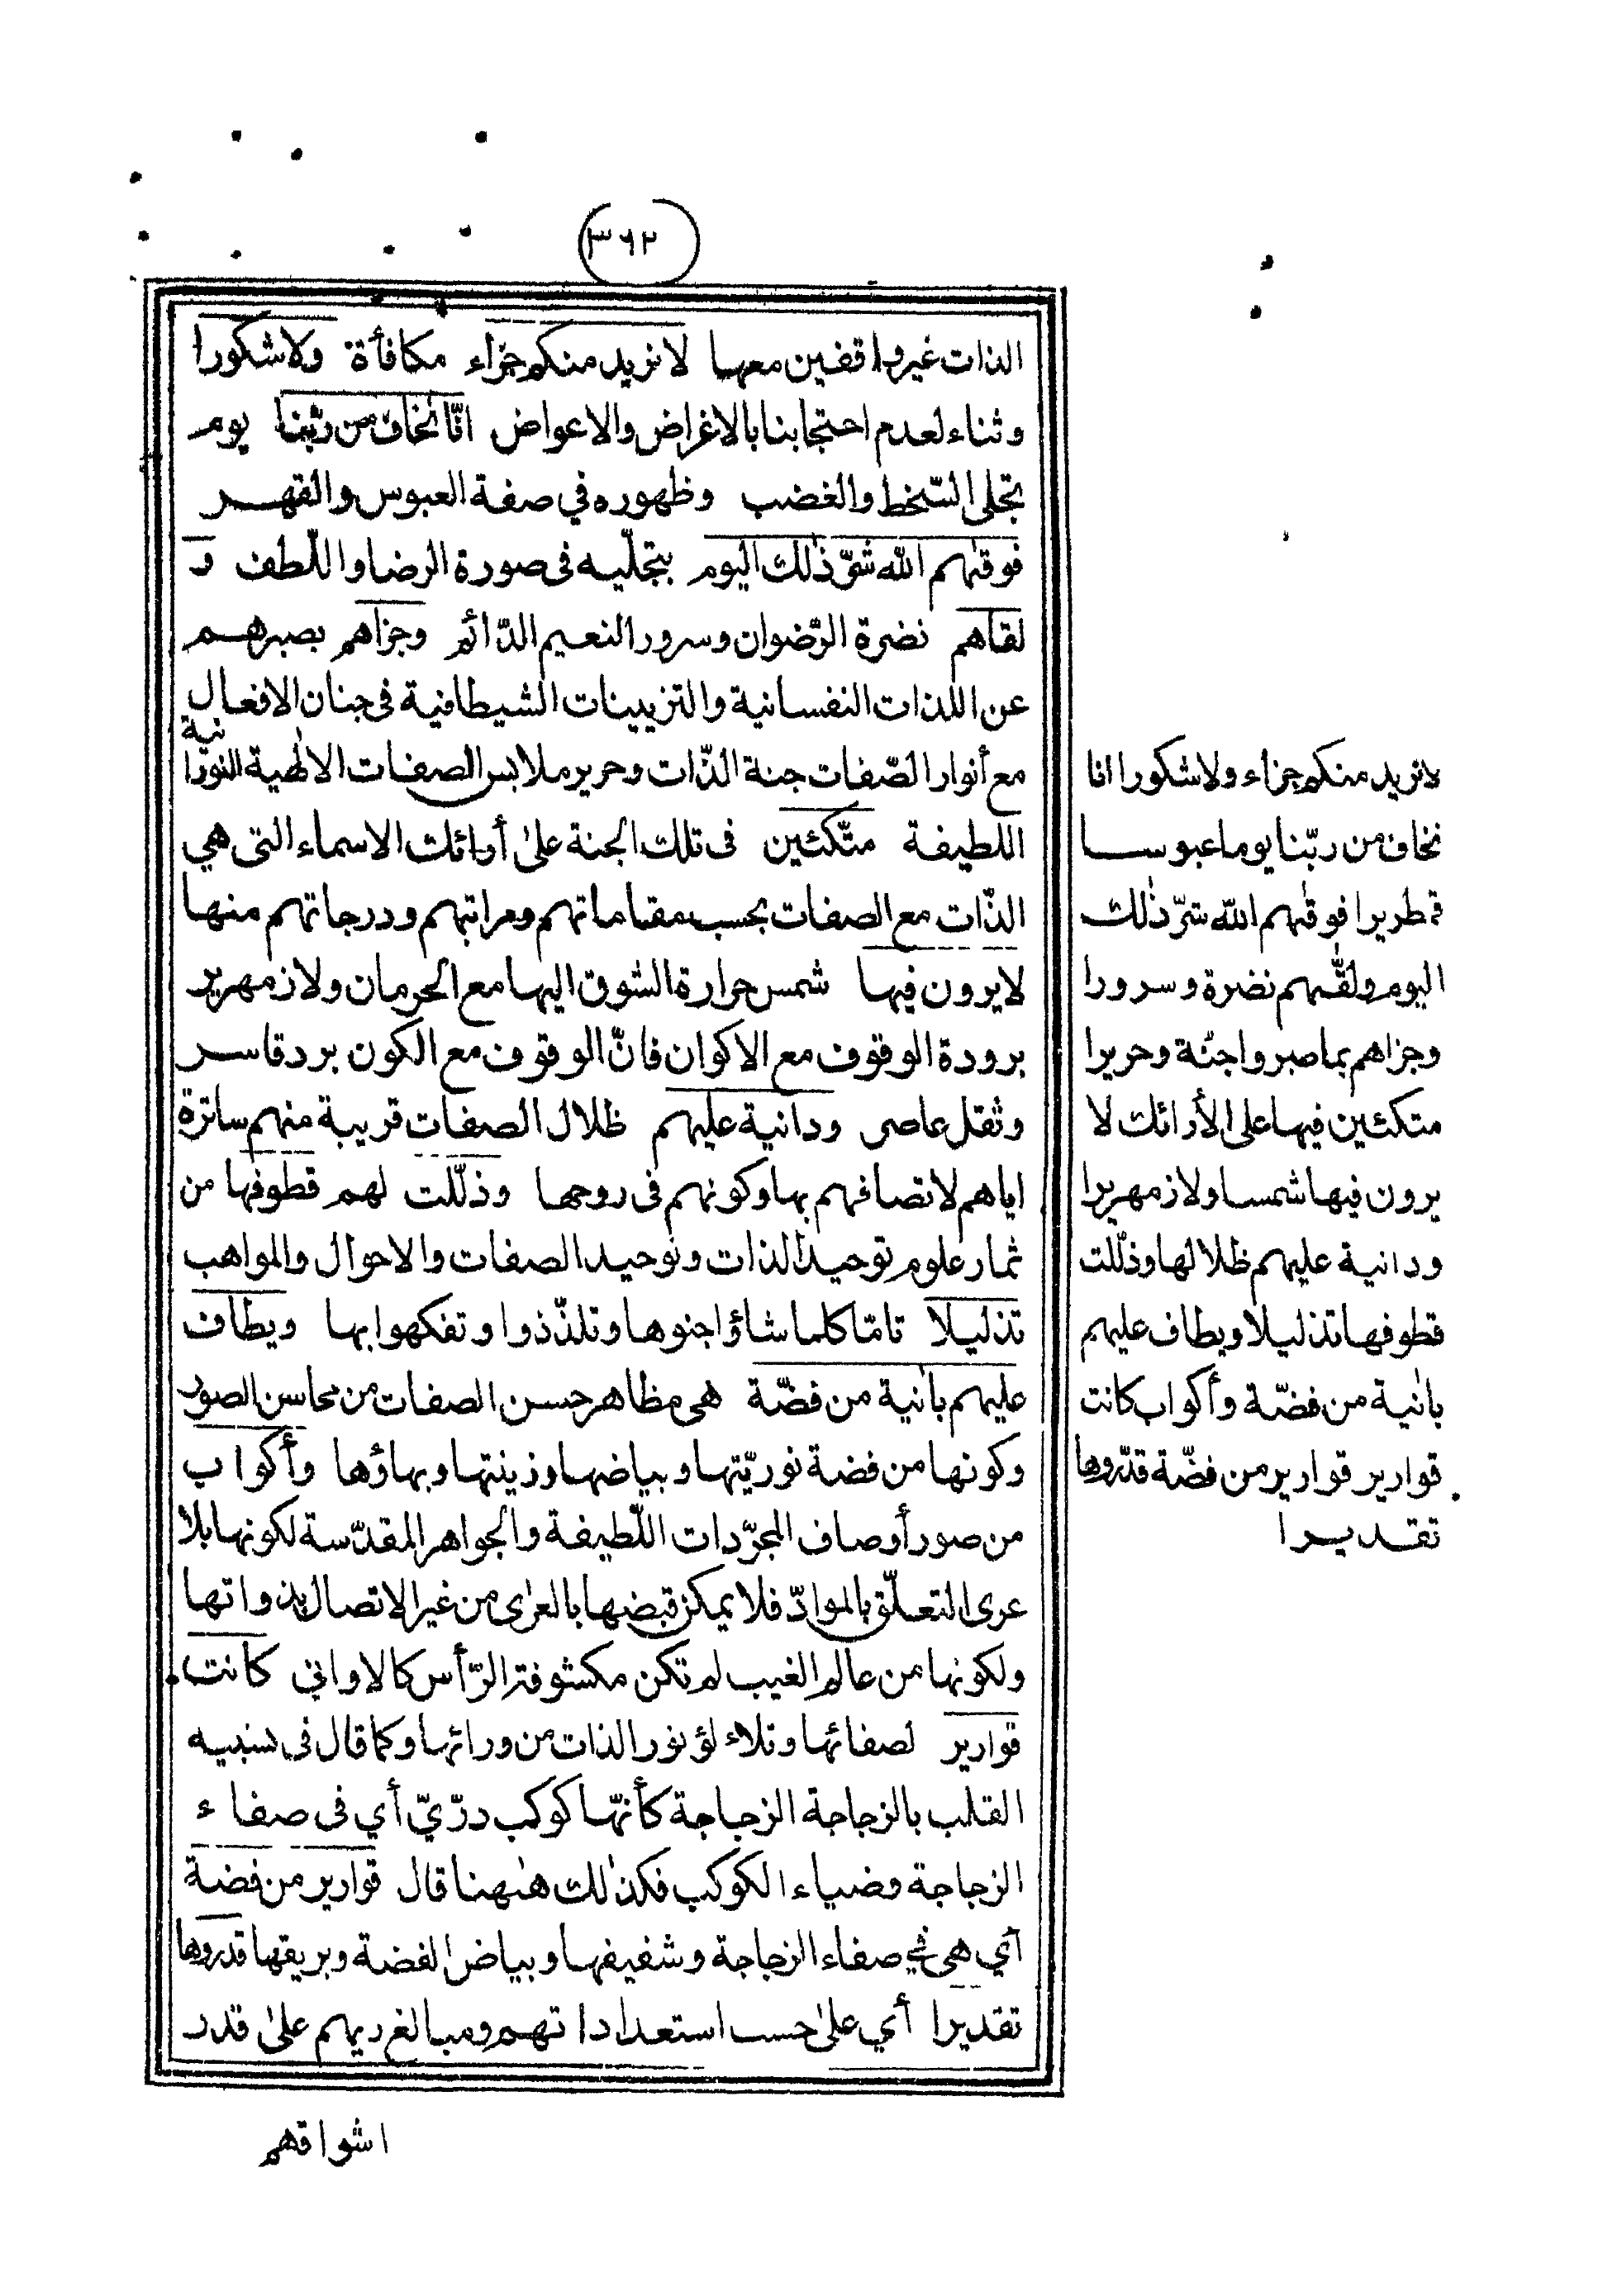 (٣٦٢)
الذات غير واقفين معها لا نريد منكم جزاء مكافأة ولا شكورا
وثناء لعدم احتجابنا بالاغراض والاعواض انّا نخاف من ربّنا يوم
تجلى السّخط والغضب وظهوره في صفة العبوس والقهر
فوقٰهم الله شرّ ذٰلك اليوم بتجلّيه فى صورة الرضا واللّطف و
لقاهم نضرة الرّضوان وسرور النعيم الدّائم وجزاهم بصبرهم
عن اللذات النفسانية والتزيينات الشيطانية فى جنان الافعال
مع أنوار الصّفات جنة الذّات وحرير ملابس الصفات الالٰهية النورانية
اللطيفة متّكئين فى تلك الجنة علىٰ أرائك الاسماء التى هي
الذّات مع الصفات بحسب مقاماتهم ومراتبهم ودرجاتهم منها
لا يرون فيها شمس حرارة الشوق اليها مع الحرمان ولا زمهرير
برودة الوقوف مع الاكوان فانّ الوقوف مع الكون برد قاسر
وثقل عاصى ودانية عليهم ظلال الصفات قريبة منهم ساترة
اياهم لاتصافهم بها وكونهم فى روحها وذلّلت لهم قطوفها من
ثمار علوم توحيد الذات وتوحيد الصفات والاحوال والمواهب
تذليلا تامّا كلما شاؤا جنوها وتلذّذوا وتفكهوا بها ويطاف
عليهم بآنية من فضّة هى مظاهر حسن الصفات من محاسن الصور
وكونها من فضة نوريّتها وبياضها وزينتها وبهاؤها وأكواب
من صور أوصاف المجرّدات اللّطيفة والجواهر المقدّسة لكونها بلا
عرى التعلّق بالموادّ فلا يمكن قبضها بالعرٰى من غير الاتصال بذواتها
ولكونها من عالم الغيب لم تكن مكشوفة الرّأس كالاوانى كانت
قوارير لصفائها وتلاء لؤ نور الذات من ورائها وكما قال فى تشبيه
القلب بالزجاجة الزجاجة كأنّها كوكب درّيّ أي فى صفاء
الزجاجة وضياء الكوكب فكذٰلك هٰهنا قال قوارير من فضة
أي هى في صفاء الزجاجة وشفيفها وبياض الفضة وبريقها قدروها
تقديرا أي علىٰ حسب استعداداتهم ومبالغ ريهم علىٰ قدر
اشواقهم
لا نريد منكم جزاء ولا شكورا انا
نخاف من ربّنا يوما عبوسا
قمطريرا فوقٰهم الله شرّ ذٰلك
اليوم ولقّٰهم نضرة وسرورا
وجزاهم بما صبروا جنّة وحريرا
متكئين فيها على الأرائك لا
يرون فيها شمسا ولا زمهريرا
ودانية عليهم ظلالها وذلّلت
قطوفها تذليلا ويطاف عليهم
بآنية من فضّة وأكواب كانت
قوارير قوارير من فضّة قدّروها
تقديرا